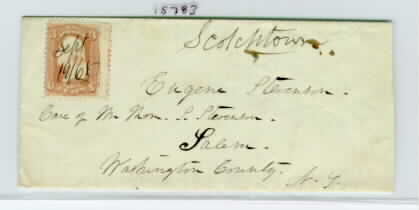 15783
Scotchtown
Sept
19/65
Eugene Stevenson.
Care of Mr Thom. S. Stevenson.
Salem.
Washington County.
N. Y.